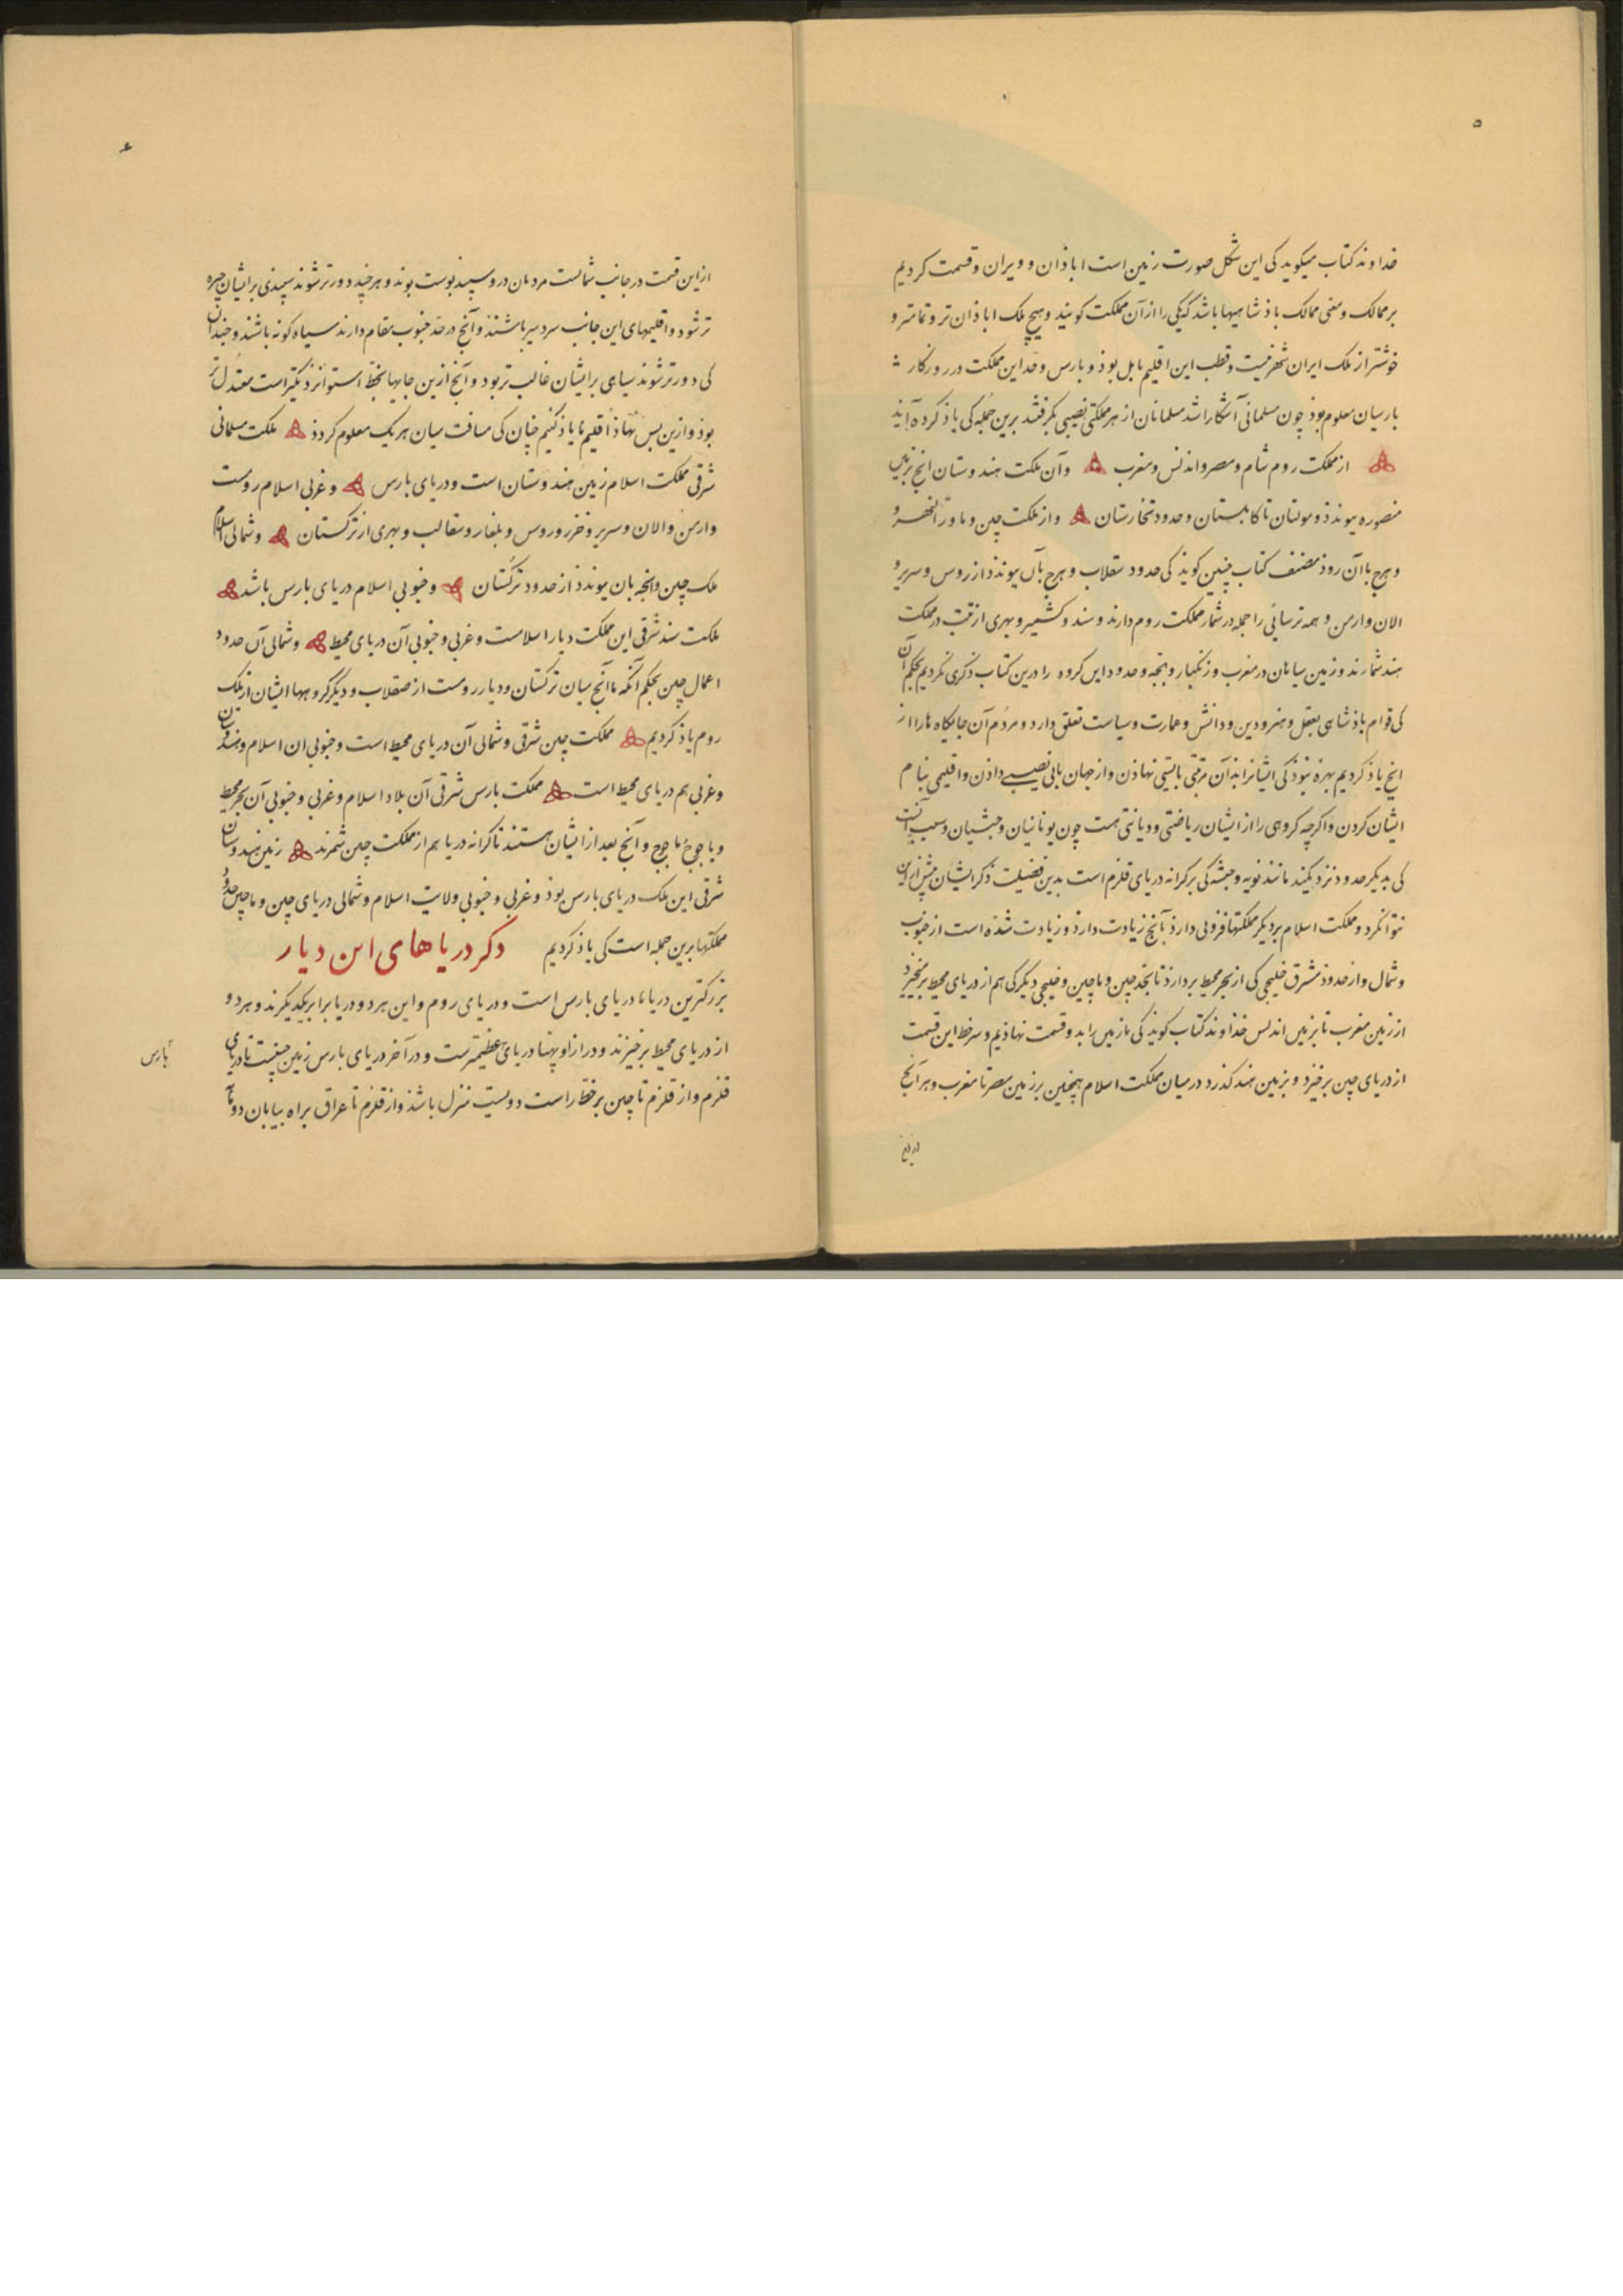 ۵
خداوند کتاب میکوید کی این شکل صورت زمین است اباذان و ویران و قسمت کردیم
بر ممالک و معنی ممالک باذشاهیها باشد که یکی را از آن مملکت کویند و هیچ ملک اباذان تر و تمامتر و
خوشتر از ملک ایران شهر نیست و قطب این اقلیم بابل بوذ و بارس و حد این مملکت در روزکار
بارسیان معلوم بوذ چون مسلمانی آشکارا شد مسلمانان از هر مملکتی نصیبی بکرفتند برین جمله کی یاذ کرده آید
از مملکت روم شام و مصر و اندلس و مغرب و آن ملکت هندوستان انچ بزمین
منصوره پیوندذ و مولتان تا کابلستان و حدود تخارستان و از ملکت چین و ماورالنهر و
و هرچ باآن روذ مصنف کتاب چنین کوید کی حدود سقلاب و هرچ بآن پیوندد از روس و سریر و
الان و ارمن و همه ترسائی را جمله در شمار مملکت روم دارند و سند و کشمیر و بهری از تبت در مملکت
هند شمارند و زمین سیاهان در مغرب و زنکبار و بجه و حدود این کروه را درین کتاب ذکری نکردیم بحکم آن
کی قوام باذشاهی بعقل و هنر و دین و دانش و عمارت و سیاست تعلق دارد و مردم آن جایکاه ها را از
انچ یاذ کردیم بهره نبوذ کی ایشانرا بذان مرتبتی بایستی نهاذن و از جهان بابی نصیبی داذن و اقلیمی بنام
ایشان کردن و اکرچه کروهی را از ایشان ریاضتی و دیانتی هست چون یونانیان و حبشیان و سبب آنست
کی بدیکر حدود نزدیکند مانند نوبه و حبشه کی بر کرانه دریای قلزم است بدین فضیلت ذکر ایشان بیش ازین
نتوا نکرد و مملکت اسلام بر دیکر مملکتها فزونی دارذ بآنچ زیادت دارذ و زیادت شده است از جنوب
و شمال و از حدود مشرق خلیجی کی از بحر محیط بردارذ تا بحد چین و ماچین و خلیجی دیکر کی هم از دریای محیط برخیزد
از زمین مغرب تا بزمین اندلس خذاوند کتاب کویذ کی ما زمین را بدو قسمت نهاذیم و سر خط این قسمت
از دریای چین برخیزد و بزمین هند کذرد در میان مملکت اسلام همچنین بر زمین مصر تا مغرب و هر آنچ
از این
۶
از این قسمت در جانب شمالست مردمان در و سپید پوست بوند و هر چند دورتر شوند سپیدی بر ایشان چیره
تر شود و اقلیمهای این جانب سردسیر باشند و آنچ در حد جنوب مقام دارند سیاه کونه باشند و چندان
کی دورتر شوند سیاهی بر ایشان غالب تر بود و آنچ ازین جایها بخط استوا نزدیکتر است معتدل تر
بوذ و ازین پس نهاذ اقلیم ما یاذ کنیم چنان کی مسافت میان هر یک معلوم کردذ ملکت مسلمانی
شرقی مملکت اسلام زمین هندوستان است و دریای بارس و غربی اسلام رومست
و ارمن و الان و سریر و خزر و روس و بلغار و سقالب و بهری از ترکستان و شمالی اسلام
ملک چین و انچه بان پیوندذ از حدود ترکستان و جنوبی اسلام دریای بارس باشد
ملکت سند شرقی این مملکت دیار اسلامست و غربی و جنوبی آن دریای محیط و شمالی آن حدود
اعمال چین بحکم آنکه ما آنچ میان ترکستان و دیار رومست از صقلاب و دیکر کروهها ایشان از ملک
روم یاذ کردیم مملکت چین شرقی و شمالی آن دریای محیط است و جنوبی ان اسلام و هندوستان
و غربی هم دریای محیط است مملکت بارس شرقی آن بلاد اسلام و غربی و جنوبی آن بحر محیط
و یاجوج ماجوج و آنچ بعد از ایشان هستند تا کرانه دریا هم از مملکت چین شمرند زمین هندوستان
شرقی این ملک دریای بارس بوذ و غربی و جنوبی ولایت اسلام و شمالی دریای چین و ماچین حدود
مملکتها برین جمله است کی یاذ کردیم دکر دریاهای این دیار
بزرکترین دریاها دریای بارس است و دریای روم و این هر دو دریا برابر یکدیکرند و هر دو
از دریای محیط برخیزند و درازا و پهنا دریای عظیمترست و در آخر دریای بارس زمین چینست تا دریای
قلزم و از قلزم تا چین بر خط راست دویست منزل باشذ و از قلزم تا عراق براه بیابان دو ماه
بارس